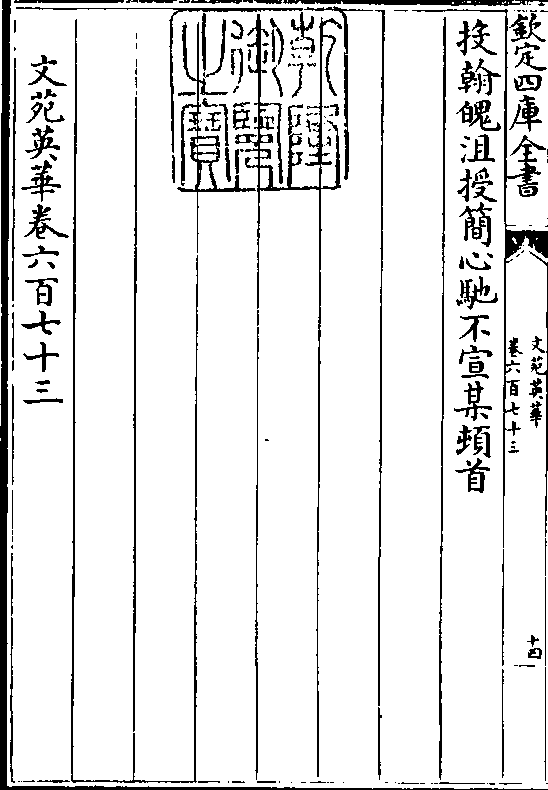 欽定四庫全書
文苑英華
卷六百七十三
十四
投翰魄沮授簡心馳不宣某頓首
乾隆御覽之寶
文苑英華卷六百七十三